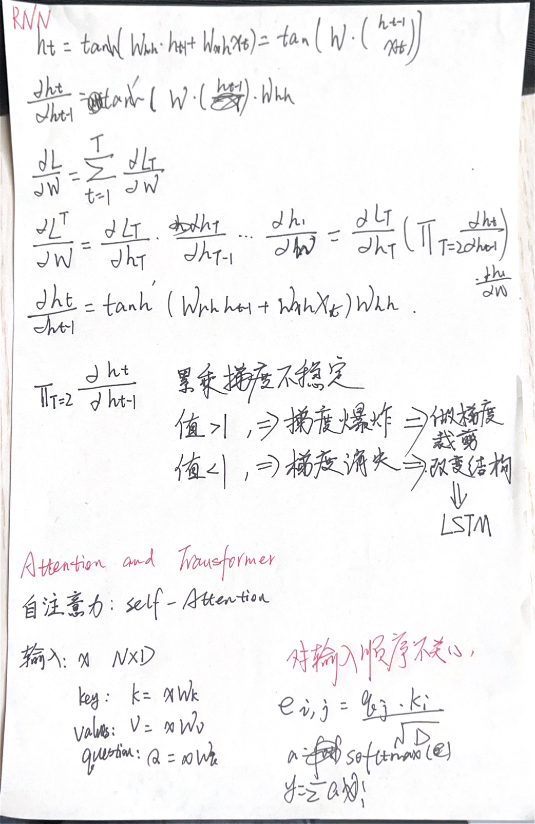 RNN
ht = tanh( Whh · ht-1 + Wxh xt) = tan( W · (ht-1 xt))
∂ht/∂ht-1 = tanh′( W · (ht-1) · Whh
∂L/∂W = Σ_{t=1}^{T} ∂LT/∂W
∂L^T/∂W = ∂LT/∂hT · ∂hT/∂hT-1 ··· ∂h1/∂W = ∂LT/∂hT (∏_{T=2} ∂ht/∂ht-1) · ∂h1/∂W
∂ht/∂ht-1 = tanh′ (Whh ht-1 + Wxh Xt) Whh .
∏_{T=2} ∂ht/∂ht-1 累乘梯度不稳定
值>1 , ⇒ 梯度爆炸 ⇒ 做梯度裁剪
值<1 , ⇒ 梯度消失 ⇒ 改变结构
⇓
LSTM
Attention and Transformer
自注意力: self-Attention
输入: x N×D
key: k = xWk
values: V = xWv
question: Q = xWk
对输入顺序不关心,
e i,j = qj · ki / √D
a = softmax(e)
y = Σ a vi